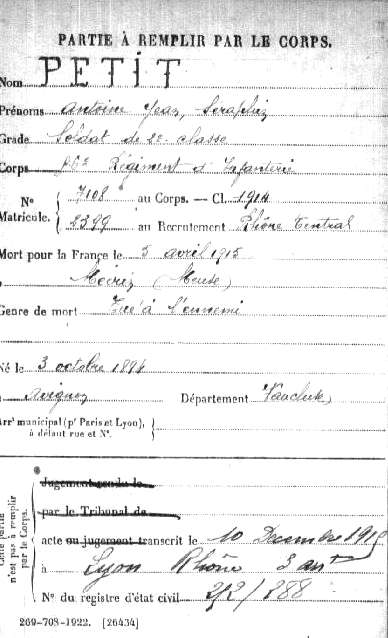 PARTIE À REMPLIR PAR LE CORPS.
Nom PETIT
Prénoms Antoine Jean, Séraphin
Grade Soldat de 2e classe
Corps Régiment d'Infanterie
N° Matricule. { 7108 au Corps. — Cl. 1914
2399 au Recrutement Rhône Central
Mort pour la France le 5 avril 1915
à (Meuse)
Genre de mort Tué à l'ennemi
Né le 3 octobre 1894
à Avignon Département Vaucluse
Arrt municipal (pr Paris et Lyon), à défaut rue et N°. {
Cette partie n'est pas à remplir par le Corps.
Jugement rendu le
par le Tribunal de
acte ou jugement transcrit le 10 Decembre
à Lyon Rhône 3 arrt
N° du registre d'état civil 212/288
269-708-1922. [26434]